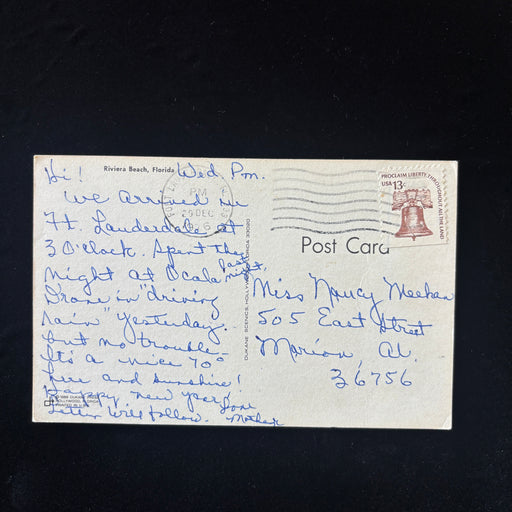 Riviera Beach, Florida
Hi! Wed. Pm.
We arrived in
Ft. Lauderdale at
3 O'clock. Spent the
night at Ocala last
night.
Drove in "driving
rain" yesterday.
but no trouble-
It's a nice 70°
here and sunshine!
Happy new year!
Letter will follow. Love
Mother
PM
29 DEC
PROCLAIM LIBERTY THROUGHOUT ALL THE LAND
USA 13c
Post Card
DUKANE SCENICS, HOLLYWOOD, FLORIDA 33020
Miss Nancy Meehan
505 East Street
Marion, Al.
36756